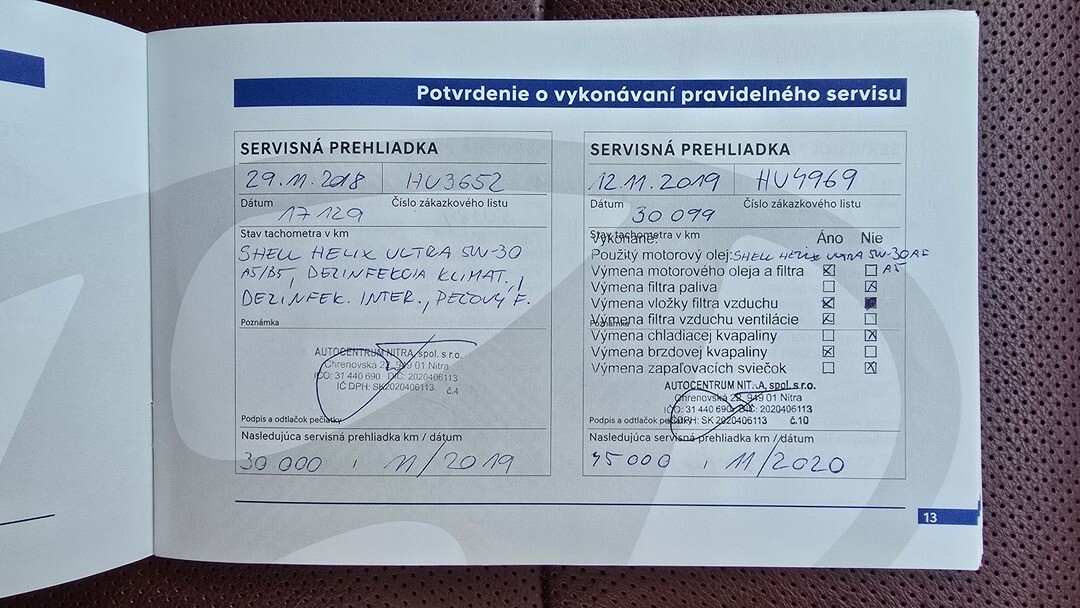 Potvrdenie o vykonávaní pravidelného servisu
SERVISNÁ PREHLIADKA
29.11.2018 HU3652
Dátum Číslo zákazkového listu
17 129
Stav tachometra v km
SHELL HELIX ULTRA 5W-30
A5/B5, DEZINFEKCIA KLIMAT.,
DEZINFEK. INTER., PEĽOVÝ F.
Poznámka
AUTOCENTRUM NITRA, spol. s r.o.
Chrenovská 22, 949 01 Nitra
IČO: 31 440 690 DIČ: 2020406113
IČ DPH: SK2020406113 č.4
Podpis a odtlačok pečiatky
Nasledujúca servisná prehliadka km / dátum
30 000 , 11/2019
SERVISNÁ PREHLIADKA
12.11.2019 HU4969
Dátum Číslo zákazkového listu
30 099
Stav tachometra v km
Vykonané: Áno Nie
Použitý motorový olej: SHELL HELIX ULTRA 5W-30 A5
Výmena motorového oleja a filtra
Výmena filtra paliva
Výmena vložky filtra vzduchu
Výmena filtra vzduchu ventilácie
Poznámka
Výmena chladiacej kvapaliny
Výmena brzdovej kvapaliny
Výmena zapaľovacích sviečok
AUTOCENTRUM NIT.A, spol. s r.o.
Chrenovská 22, 949 01 Nitra
IČO: 31 440 690 DIČ: 2020406113
IČ DPH: SK 2020406113 č.10
Podpis a odtlačok pečiatky
Nasledujúca servisná prehliadka km / dátum
45 000 , 11/2020
13